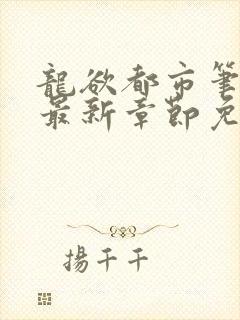 龍欲都市筆
最新章節免
揚千千